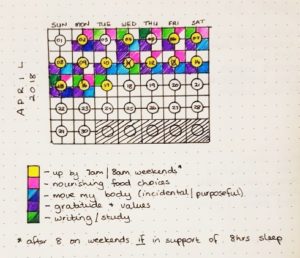 SUN MON TUE WED THU FRI SAT
APRIL
2018
01 02 03 04 05 06 07
08 09 10 11 12 13 14
15 16 17 18 19 20 21
22 23 24 25 26 27 28
29 30
- up by 7am/8am weekends*
- nourishing food choices
- move my body (incidental/purposeful)
- gratitude + values
- writing/study
* after 8 on weekends if in support of 8hrs sleep